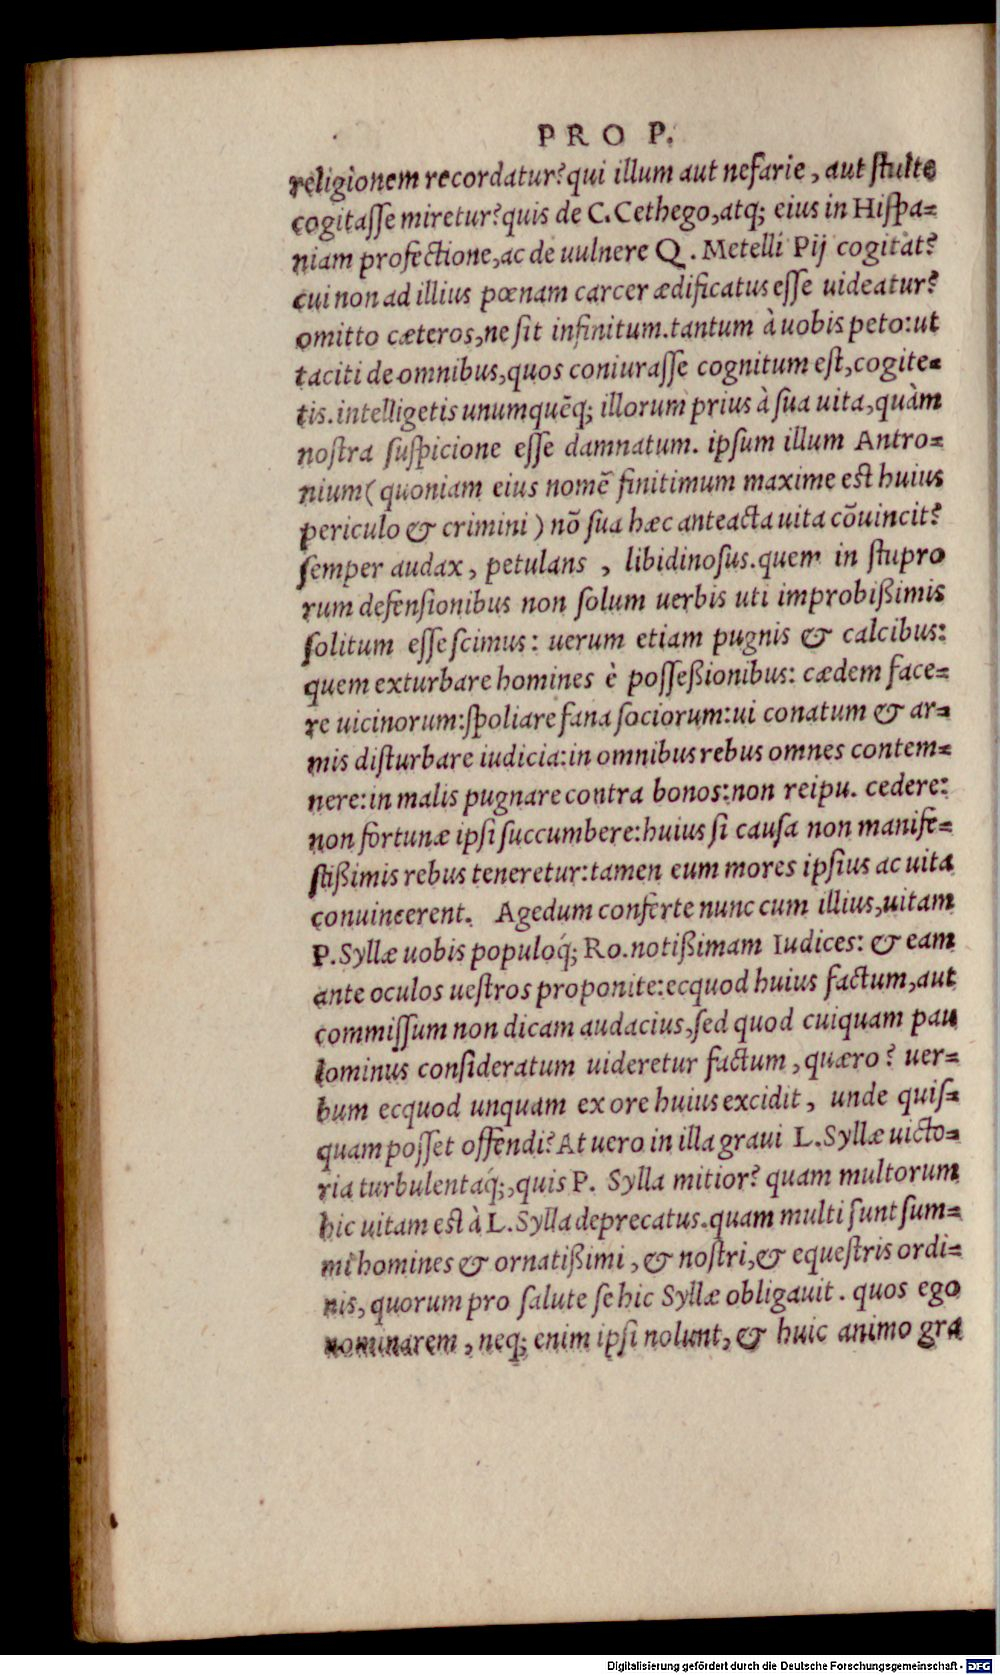 PRO P.
religionem recordatur? qui illum aut nefarie, aut ſtulte
cogitaſſe miretur? quis de C. Cethego, atq; eius in Hiſpa=
niam profectione, ac de uulnere Q. Metelli Pij cogitat?
cui non ad illius pœnam carcer ædificatus eſſe uideatur?
omitto cæteros, ne ſit infinitum. tantum à uobis peto: ut
taciti de omnibus, quos coniuraſſe cognitum eſt, cogite=
tis. intelligetis unumquēq; illorum prius à ſua uita, quàm
noſtra ſuſpicione eſſe damnatum. ipſum illum Antro=
nium (quoniam eius nomē finitimum maxime est huius
periculo & crimini) nō ſua hæc anteacta uita cōuincit?
ſemper audax, petulans, libidinoſus. quem in ſtupro
rum defenſionibus non ſolum uerbis uti improbißimis
ſolitum eſſe ſcimus: uerum etiam pugnis & calcibus:
quem exturbare homines è poſſeßionibus: cædem face=
re uicinorum: ſpoliare fana ſociorum: ui conatum & ar=
mis diſturbare iudicia: in omnibus rebus omnes contem=
nere: in malis pugnare contra bonos: non reipu. cedere:
non fortunæ ipſi ſuccumbere: huius ſi cauſa non manife=
ſtißimis rebus teneretur: tamen eum mores ipſius ac uita
conuincerent. Agedum conferte nunc cum illius, uitam
P. Syllæ uobis populoq́; Ro. notißimam Iudices: & eam
ante oculos ueſtros proponite: ecquod huius factum, aut
commiſſum non dicam audacius, ſed quod cuiquam pau
lominus conſideratum uideretur factum, quæro? uer=
bum ecquod unquam ex ore huius excidit, unde quiſ=
quam poſſet offendi? At uero in illa graui L. Syllæ uicto=
ria turbulentaq́;, quis P. Sylla mitior? quam multorum
hic uitam est à L. Sylla deprecatus. quam multi ſunt ſum=
mi homines & ornatißimi, & noſtri, & equeſtris ordi=
nis, quorum pro ſalute ſe hic Syllæ obligauit. quos ego
nominarem, neq; enim ipſi nolunt, & huic animo gra
Digitalisierung gefördert durch die Deutsche Forschungsgemeinschaft - DFG